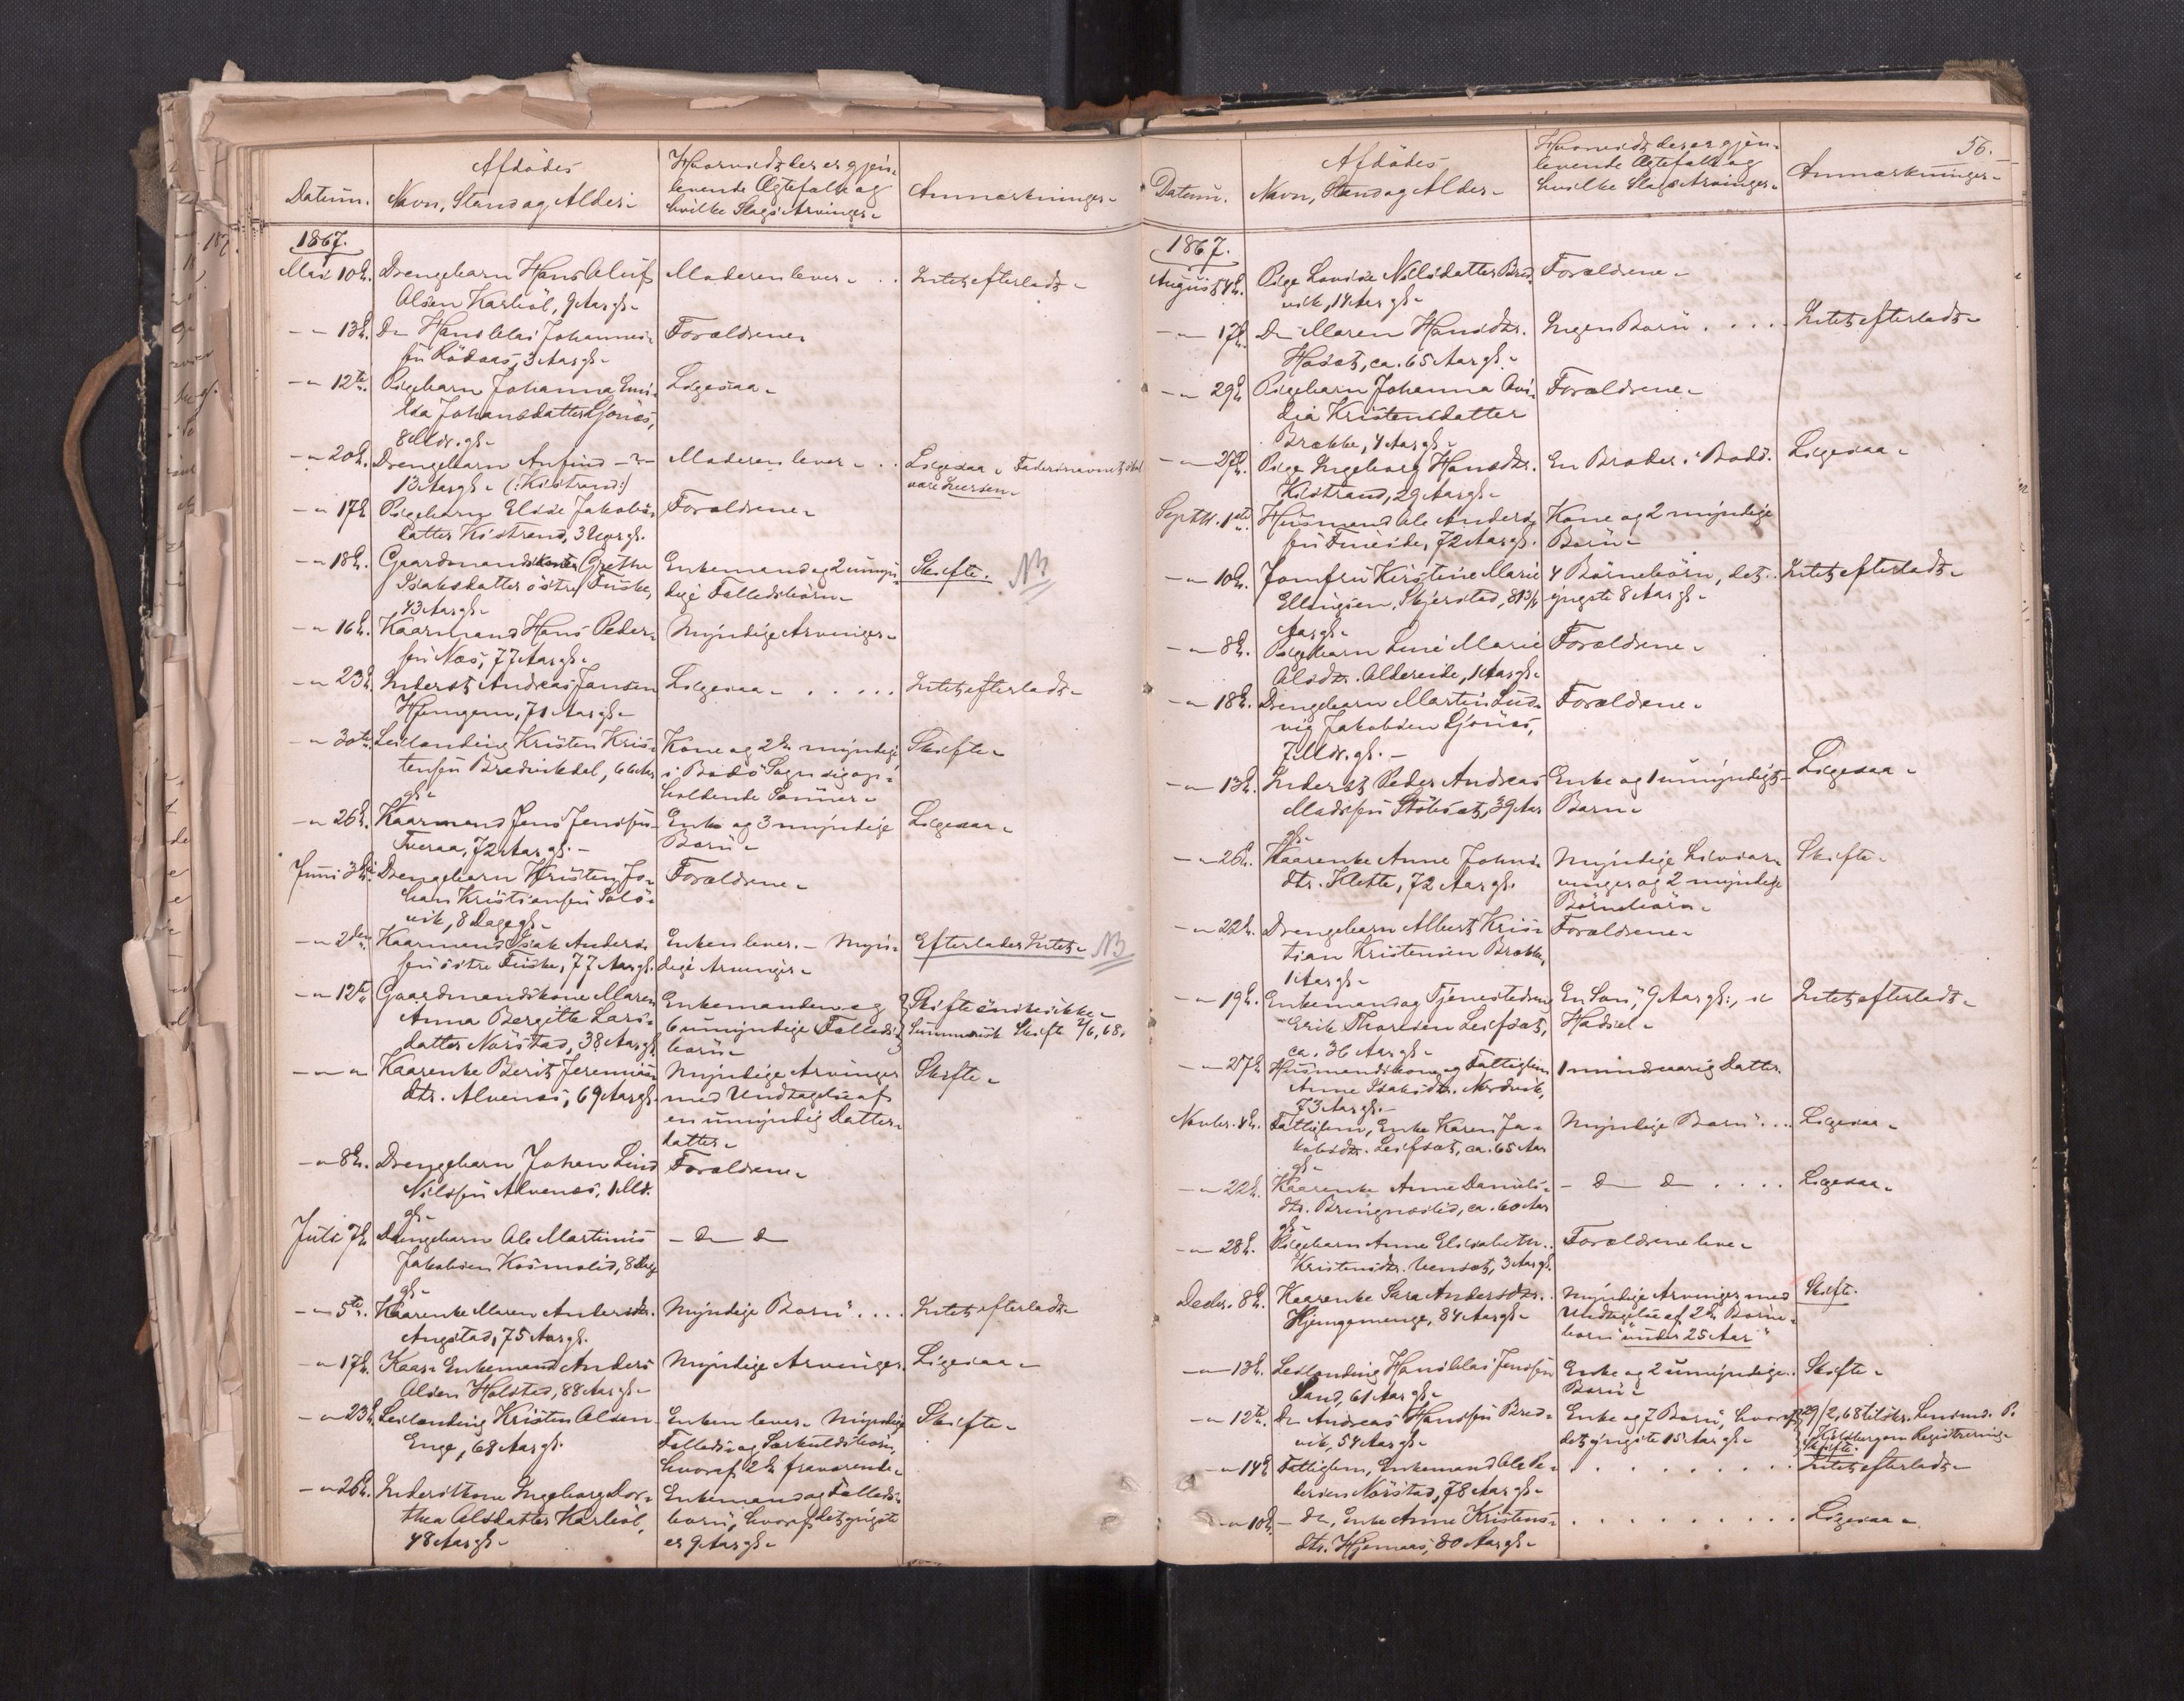 Afdödes
Hvorvidt der er gjen-
levende Ægtefælle og
hvilke Slags Arvinger.
Datum.
Navn, Stand og Alder.
Anmærkninger.
1867.
Mai 10de.
Drengebarn Hans Oluf
Olsen Karlsöl, 9 Aar gl.
Moderen lever. . .
Intet efterladt.
— 13de.
Do Hans Johannes-
sen Rödaas, 3 Aar gl.
Forældrene.
— 12te.
Pigebarn Johanna Emi-
lsa Johansdatter Gjönæs,
8 Mdr. gl.
Ligesaa.
— 20de.
Drengebarn Anfind —?—
13 Aar gl. (: Kistrand :)
Moderen lever. . .
Ligesaa. Fadersnavnet skal
være Larsen.
— 17de
Pigebarn Elise Jakobs-
datter Kistrand, 3 Uger gl.
Forældrene.
— 18de.
Gaardmandskone Grethe
Isaksdatter östre Fuske,
43 Aar gl.
Enkemand og 2 umyn-
dige Fælledsbörn.
Skifte. NB
— 16de.
Kaarmand Hans Peder-
sen Næs, 77 Aar gl.
Myndige Arvinger.
— 23de.
Inderst Andreas Jansen
Hjemgam, 71 Aar gl.
Ligesaa. . . . . .
Intet efterladt.
— 30te.
Leilænding Kristen Kris-
tensen Bredvikdal, 66 Aar
gl.
Kone og 2de myndige
i Bodö Sogn sig op-
holdende Sönner.
Skifte.
— 26de.
Kaarmand Jens Jensen
Tveraa, 72 Aar gl. —
Enke og 3 myndige
Börn.
Ligesaa.
Juni 3die.
Drengebarn Kristen Jo-
han Kristiansen Solö-
vik, 8 Dage gl.
Forældrene.
— 2den.
Kaarmand Isak Anders-
sen östre Fuske, 77 Aar gl.
Enken lever. — Myn-
dige Arvinger.
Efterlader Intet. NB
— 12te
Gaardmandskone Maren
Anna Bergitte Lars-
datter Nörstad, 38 Aar gl.
Enkemanden og
6 umyndige Fælleds-
börn.
Skifte önskes ikke.
Summarisk Skifte 2/6, 68.
— —
Kaarenke Berit Jeremias-
dtr. Alvenes, 69 Aar gl.
Myndige Arvinger
med Undtagelse af
en umyndig Datter-
datter.
Skifte.
— 8de.
Drengebarn Johan Lind
Nilssen Alvenes, 1 Md.
gl.
Forældrene.
Juli 7de
Drengebarn Ole Martinus
Jakobsen Kosmolid, 8 Dage
gl.
— Do Do
— 5te.
Kaarenke Maren Andersdtr.
Angstad, 75 Aar gl.
Myndige Börn. . . .
Intet efterladt.
— 17de.
Kaar- Enkemand Anders
Olsen Holstad, 88 Aar gl.
Myndige Arvinger.
Ligesaa.
— 23de
Leilænding Kristen Olsen
Enge, 68 Aar gl.
Enken lever. Myndige
Fælleds- og Særkuldsbörn,
hvoraf 2de fraværende.
Skifte.
— 26de.
Inderstkone Ingeborg Dor-
thea Olsdatter Karlsöl,
48 Aar gl.
Enkemand og Fælleds-
börn, hvoraf det yngste
er 9 Aar gl.
56.
Afdödes
Hvorvidt der er gjen-
levende Ægtefælle og
hvilke Slags Arvinger.
Datum.
Navn, Stand og Alder.
Anmærkninger.
1867.
August 4de.
Pige Lovise Nilsdatter Bred-
vik, 14 Aar gl.
Forældrene.
— 17de.
Do Maren Hansdtr.
Hoset, ca. 65 Aar gl.
Ingen Börn. . . . .
Intet efterladt.
— 29de
Pigebarn Johanna Ovi-
dia Kristensdatter
Brække, 4 Aar gl.
Forældrene.
— 27de.
Pige Ingeborg Hansdtr.
Kistrand, 29 Aar gl.
En Broder i Bodö.
Ligesaa.
Septbr. 1ste.
Husmand Ole Anders-
sen Fineide, 72 Aar gl.
Kone og 2 myndige
Börn.
— 10de.
Jomfru Kirstine Marie
Ellingsen, Skjerstad, 81 3/4
Aar gl.
4 Börnebörn, det
yngste 8 Aar gl.
Intet efterladt.
— 8de.
Pigebarn Line Marie
Olsdtr. Oldereide, 1 Aar gl.
Forældrene.
— 18de.
Drengebarn Martin Lud-
vig Jakobsen Gjönes,
7 Mdr. gl. —
Forældrene.
— 13de.
Inderst Peder Andreas
Madssen Stolset, 39 Aar
gl.
Enke og 1 umyndigt
Barn.
Ligesaa.
— 26de.
Kaarenke Anne Johns-
dtr. Klette, 72 Aar gl.
Myndige Livsar-
vinger og 2 myndige
Börnebörn.
Skifte.
— 22de.
Drengebarn Albert Kris-
tian Kristensen Brække,
1 Aar gl.
Forældrene.
— 19de.
Enkemand og Tjenestedreng
Erik Thorsen Leifset,
ca. 36 Aar gl.
En Sön, 9 Aar gl., i
Hadsel.
Intet efterladt.
— 27de
Husmandskone og Fattiglem
Anne Isaksdtr. Nordvik,
73 Aar gl. —
1 mindreaarig Datter.
Novbr. 4de.
Fattiglem, Enke Karen Ja-
kobsdtr. Leifset, ca. 65 Aar
gl.
Myndige Börn. . . .
Ligesaa.
— 22de.
Kaarenke Anne Daniels-
dtr. Bringnæslid, ca. 60 Aar
gl.
— Do Do . . . .
Ligesaa.
— 28de.
Pigebarn Anne Elisabeth
Kristensdtr. Venset, 3 Aar gl.
Forældrene leve.
Decbr. 8de.
Kaarenke Sara Andersdtr.
Hjemgamenge, 84 Aar gl.
Myndige Arvinger med
Undtagelse af 2de Börne-
börn under 25 Aar
Skifte.
— 13de.
Leilænding Hans Jenssen
Sand, 61 Aar gl.
Enke og 2 umyndige
Börn.
Skifte.
— 12te.
Do Andreas Hanssen Bred-
vik, 54 Aar gl.
Enke og 7 Börn, hvoraf
det yngste 15 Aar gl.
29/2, 68 tilskr. Lensmd. P.
Registrering.
Skifte.
— 14de
Fattiglem, Enkemand Ole Pe-
dersen Nörstad, 78 Aar gl.
. . . . . . . . .
Intet efterladt.
— 10de.
— Do, Enke Anne Kristens-
dtr. Hjemaas, 80 Aar gl.
. . . . . . . . .
Ligesaa.